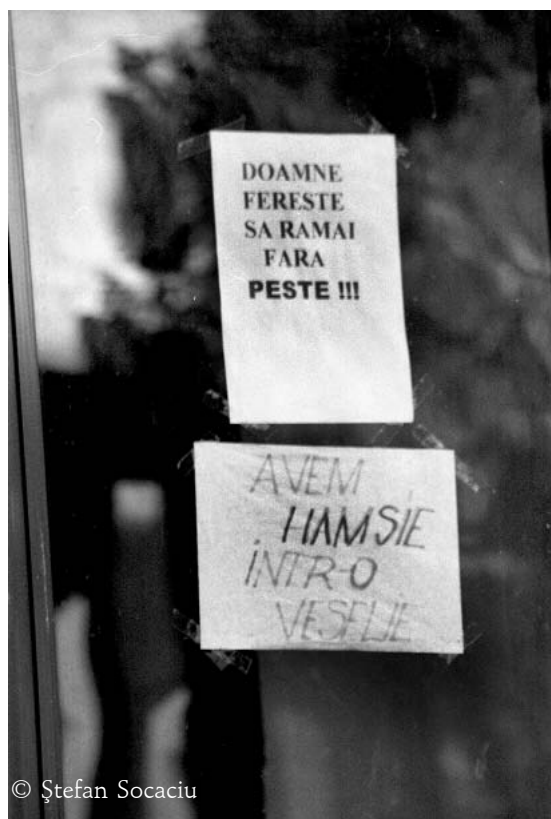 DOAMNE
FERESTE
SA RAMAI
FARA
PESTE !!!
AVEM
HAMSIE
INTR-O
VESELIE
© Ştefan Socaciu